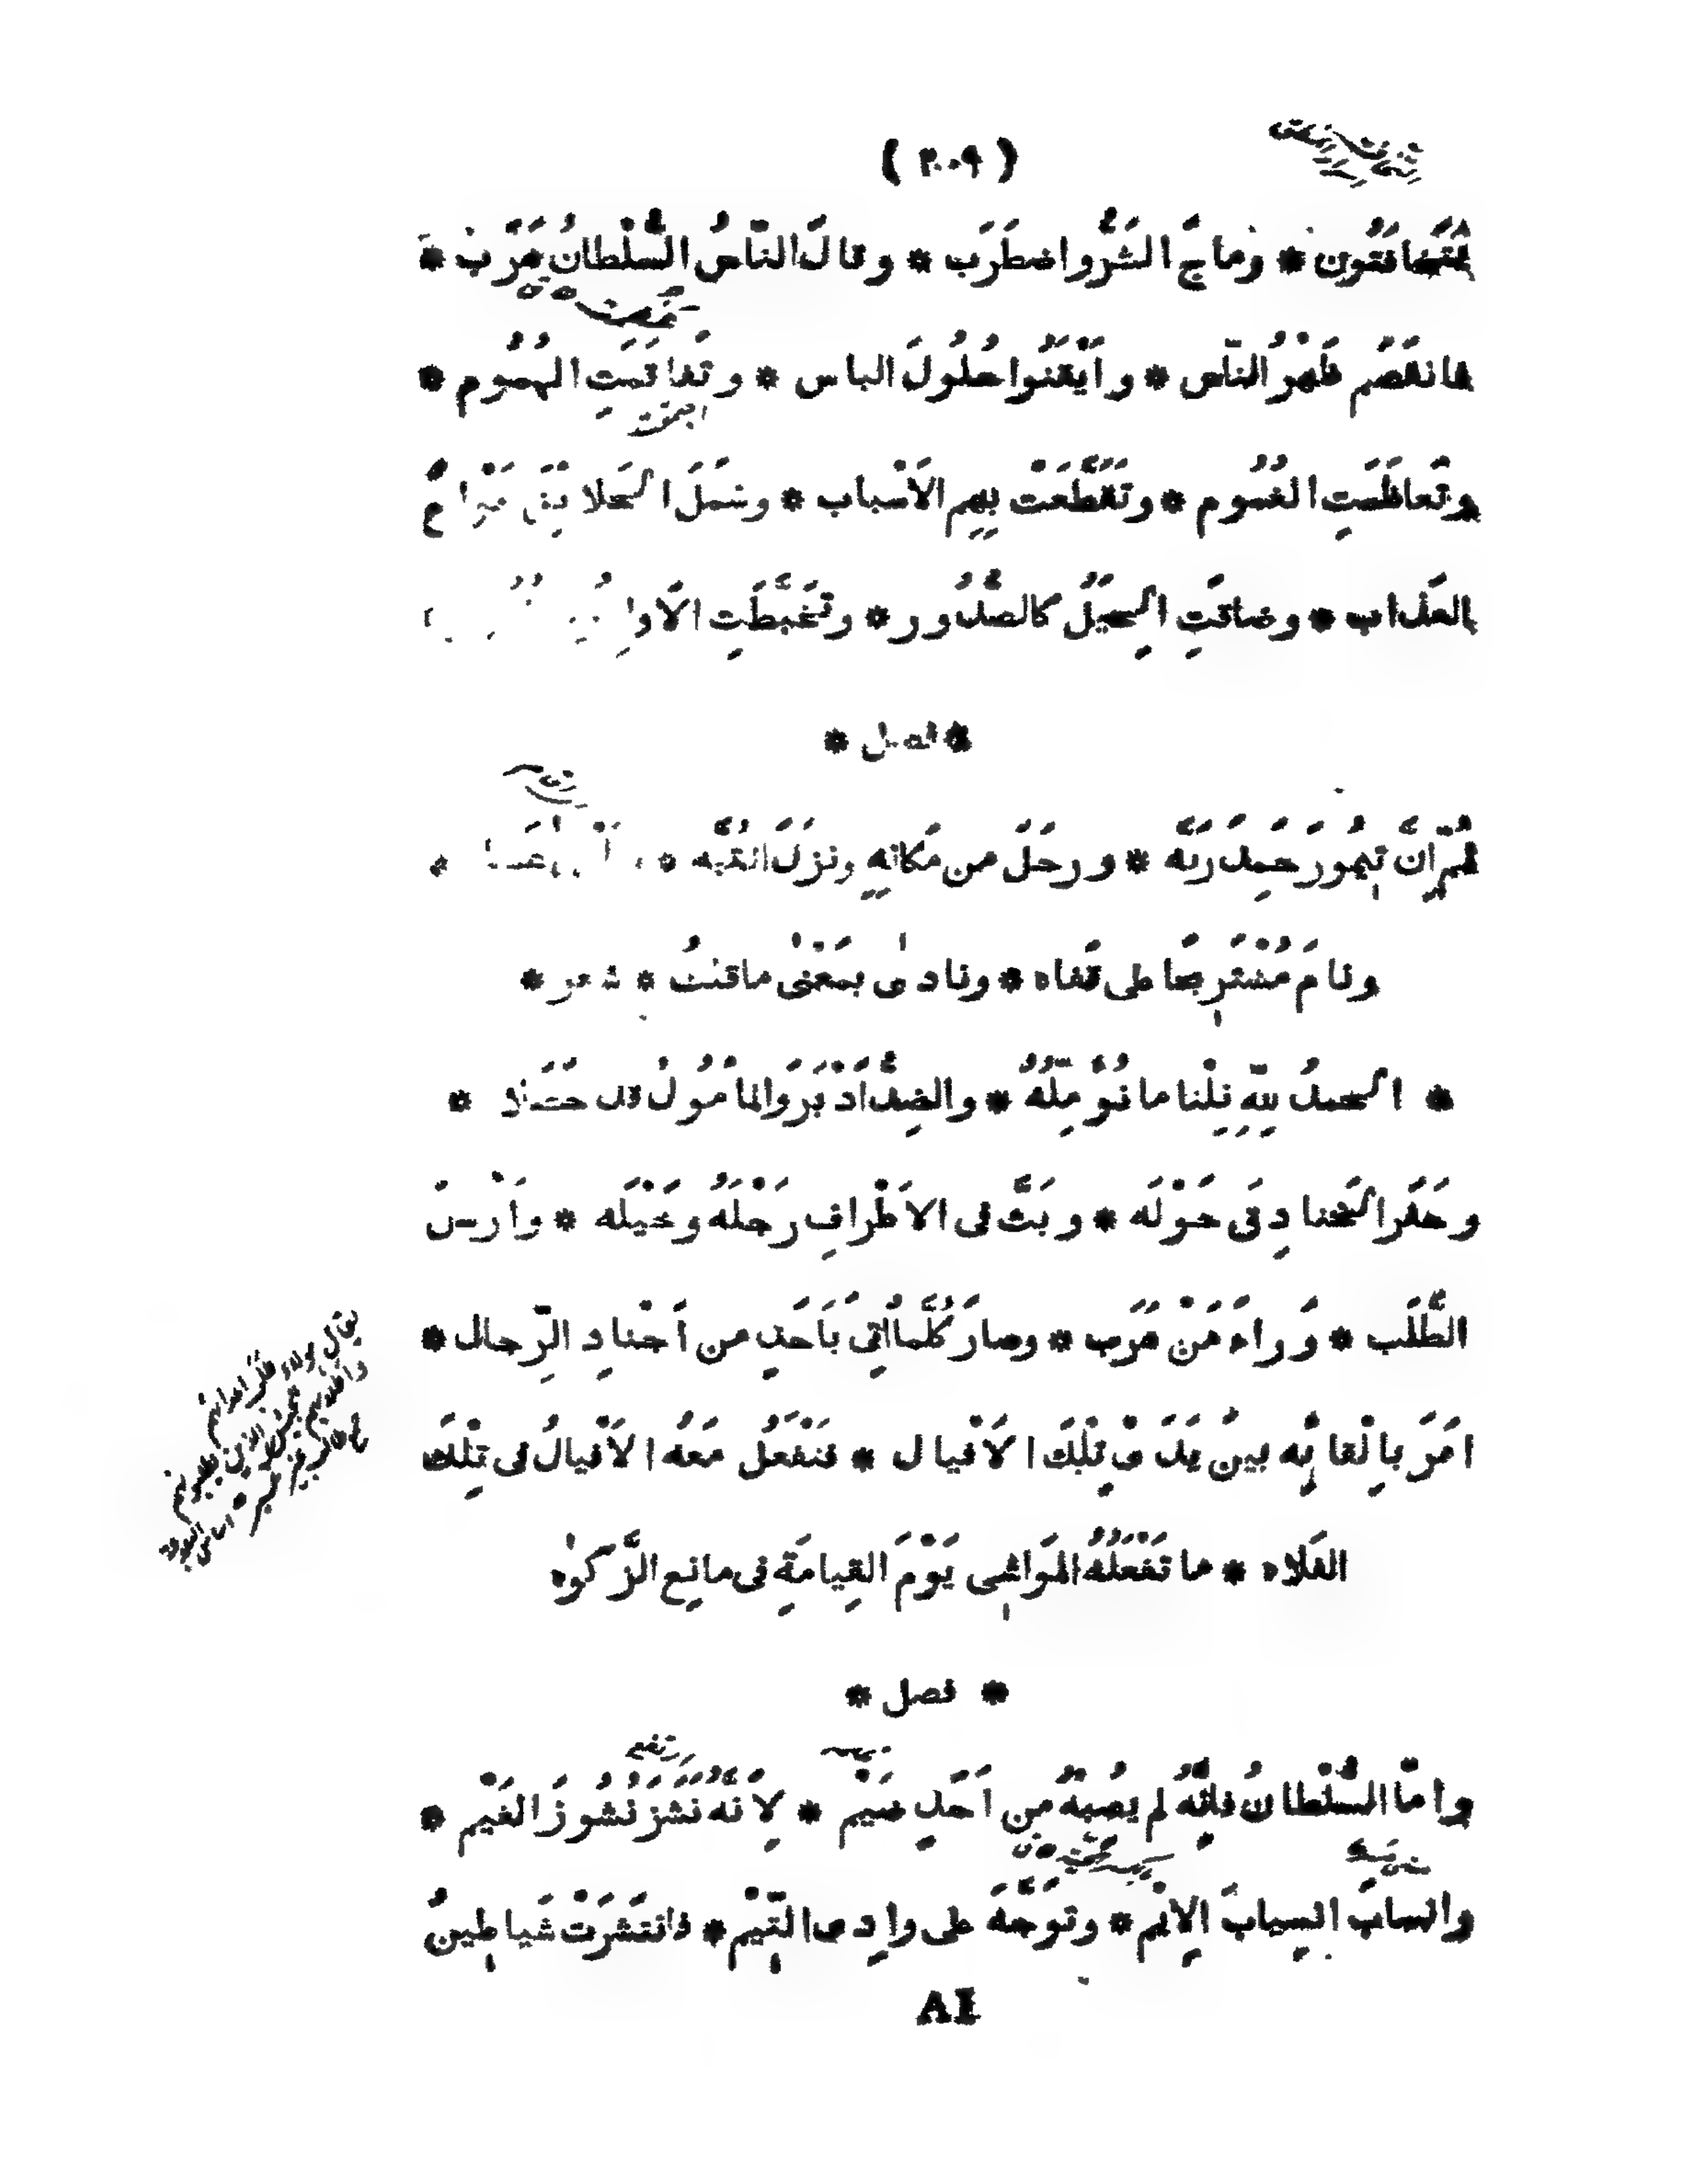 ( ٢٠٩ )
يَتَخافَتُون * وماجَ الشَّرُّ واضطَرَب * وقالَ النّاسُ السُّلْطانُ هَرَب *
فانقَصَم ظَهْرُ النّاس * واَيْقَنُوا حُلُولَ الباس * وتَفاقَمَتِ الهُمُوم *
وتَعاظَمَتِ الغُمُوم * وتَقَطَّعَت بِهِم الاَسْباب * وشَمَلَ الخَلائِقَ
العَذاب * وضاقَتِ الحِيَلُ كالصُّدُور * وتَخَبَّطَتِ
* فصل *
ثُمّ اِنَّ تِيمُور حَمِدَ رَبَّه * ورحَلَ من مَكانِهِ ونزلَ القُبَّه *
ونامَ مُسْتَرِيحًا على قَفاه * ونادى بمَعْنى ماقلتُ * شعر *
* الحمدُ لِلّهِ نِلْنا ما نُوَمِّلُهُ * والضِّدُّ اَدْبَرَ والمأمُولُ قد حَصَلا *
وحَفَر الخَنادِقَ حَوْلَه * وبَثَّ فى الاَطْرافِ رَجْلَهُ وخَيْلَه * واَرْسَل
الطَّلَب * وَراءَ مَنْ هَرَب * وصارَ كُلَّما اُتِيَ بِاَحَدٍ من اَجْنادِ الرِّجال *
اَمَرَ بِاِلْقائِه بينَ يَدَىْ تِلْكَ الاَفْيال * فتَفْعَلُ مَعَهُ الاَفْيالُ فى تِلْكَ
الفَلاه * ما تَفْعَلُهُ المَواشِى يَوْمَ القِيامَةِ فى مانِعِ الزَّكوٰه
* فصل *
واَمّا السُّلْطانُ فاِنَّهُ لم يصُبْهُ من اَحَدٍ ضَيْم * لِاَنَّهُ نَشَزَ نُشُوزَ الغَيْم *
وانسابَ انسِيابَ الاِيْم * وتَوَجَّهَ على وادِى التَّيْم * فانتَشَرَتْ شَياطِينُ
A I